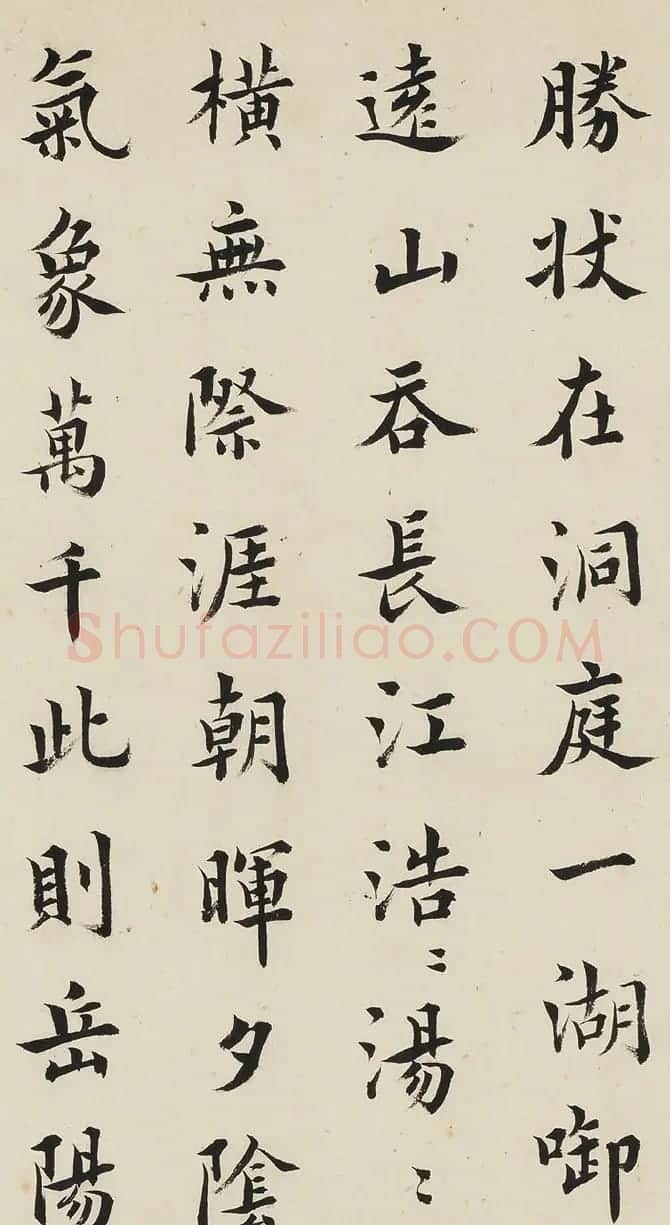 勝状在洞庭一湖啣
遠山吞長江浩〻湯〻
橫無際涯朝暉夕陰
氣象萬千此則岳陽
Shufaziliao.COM